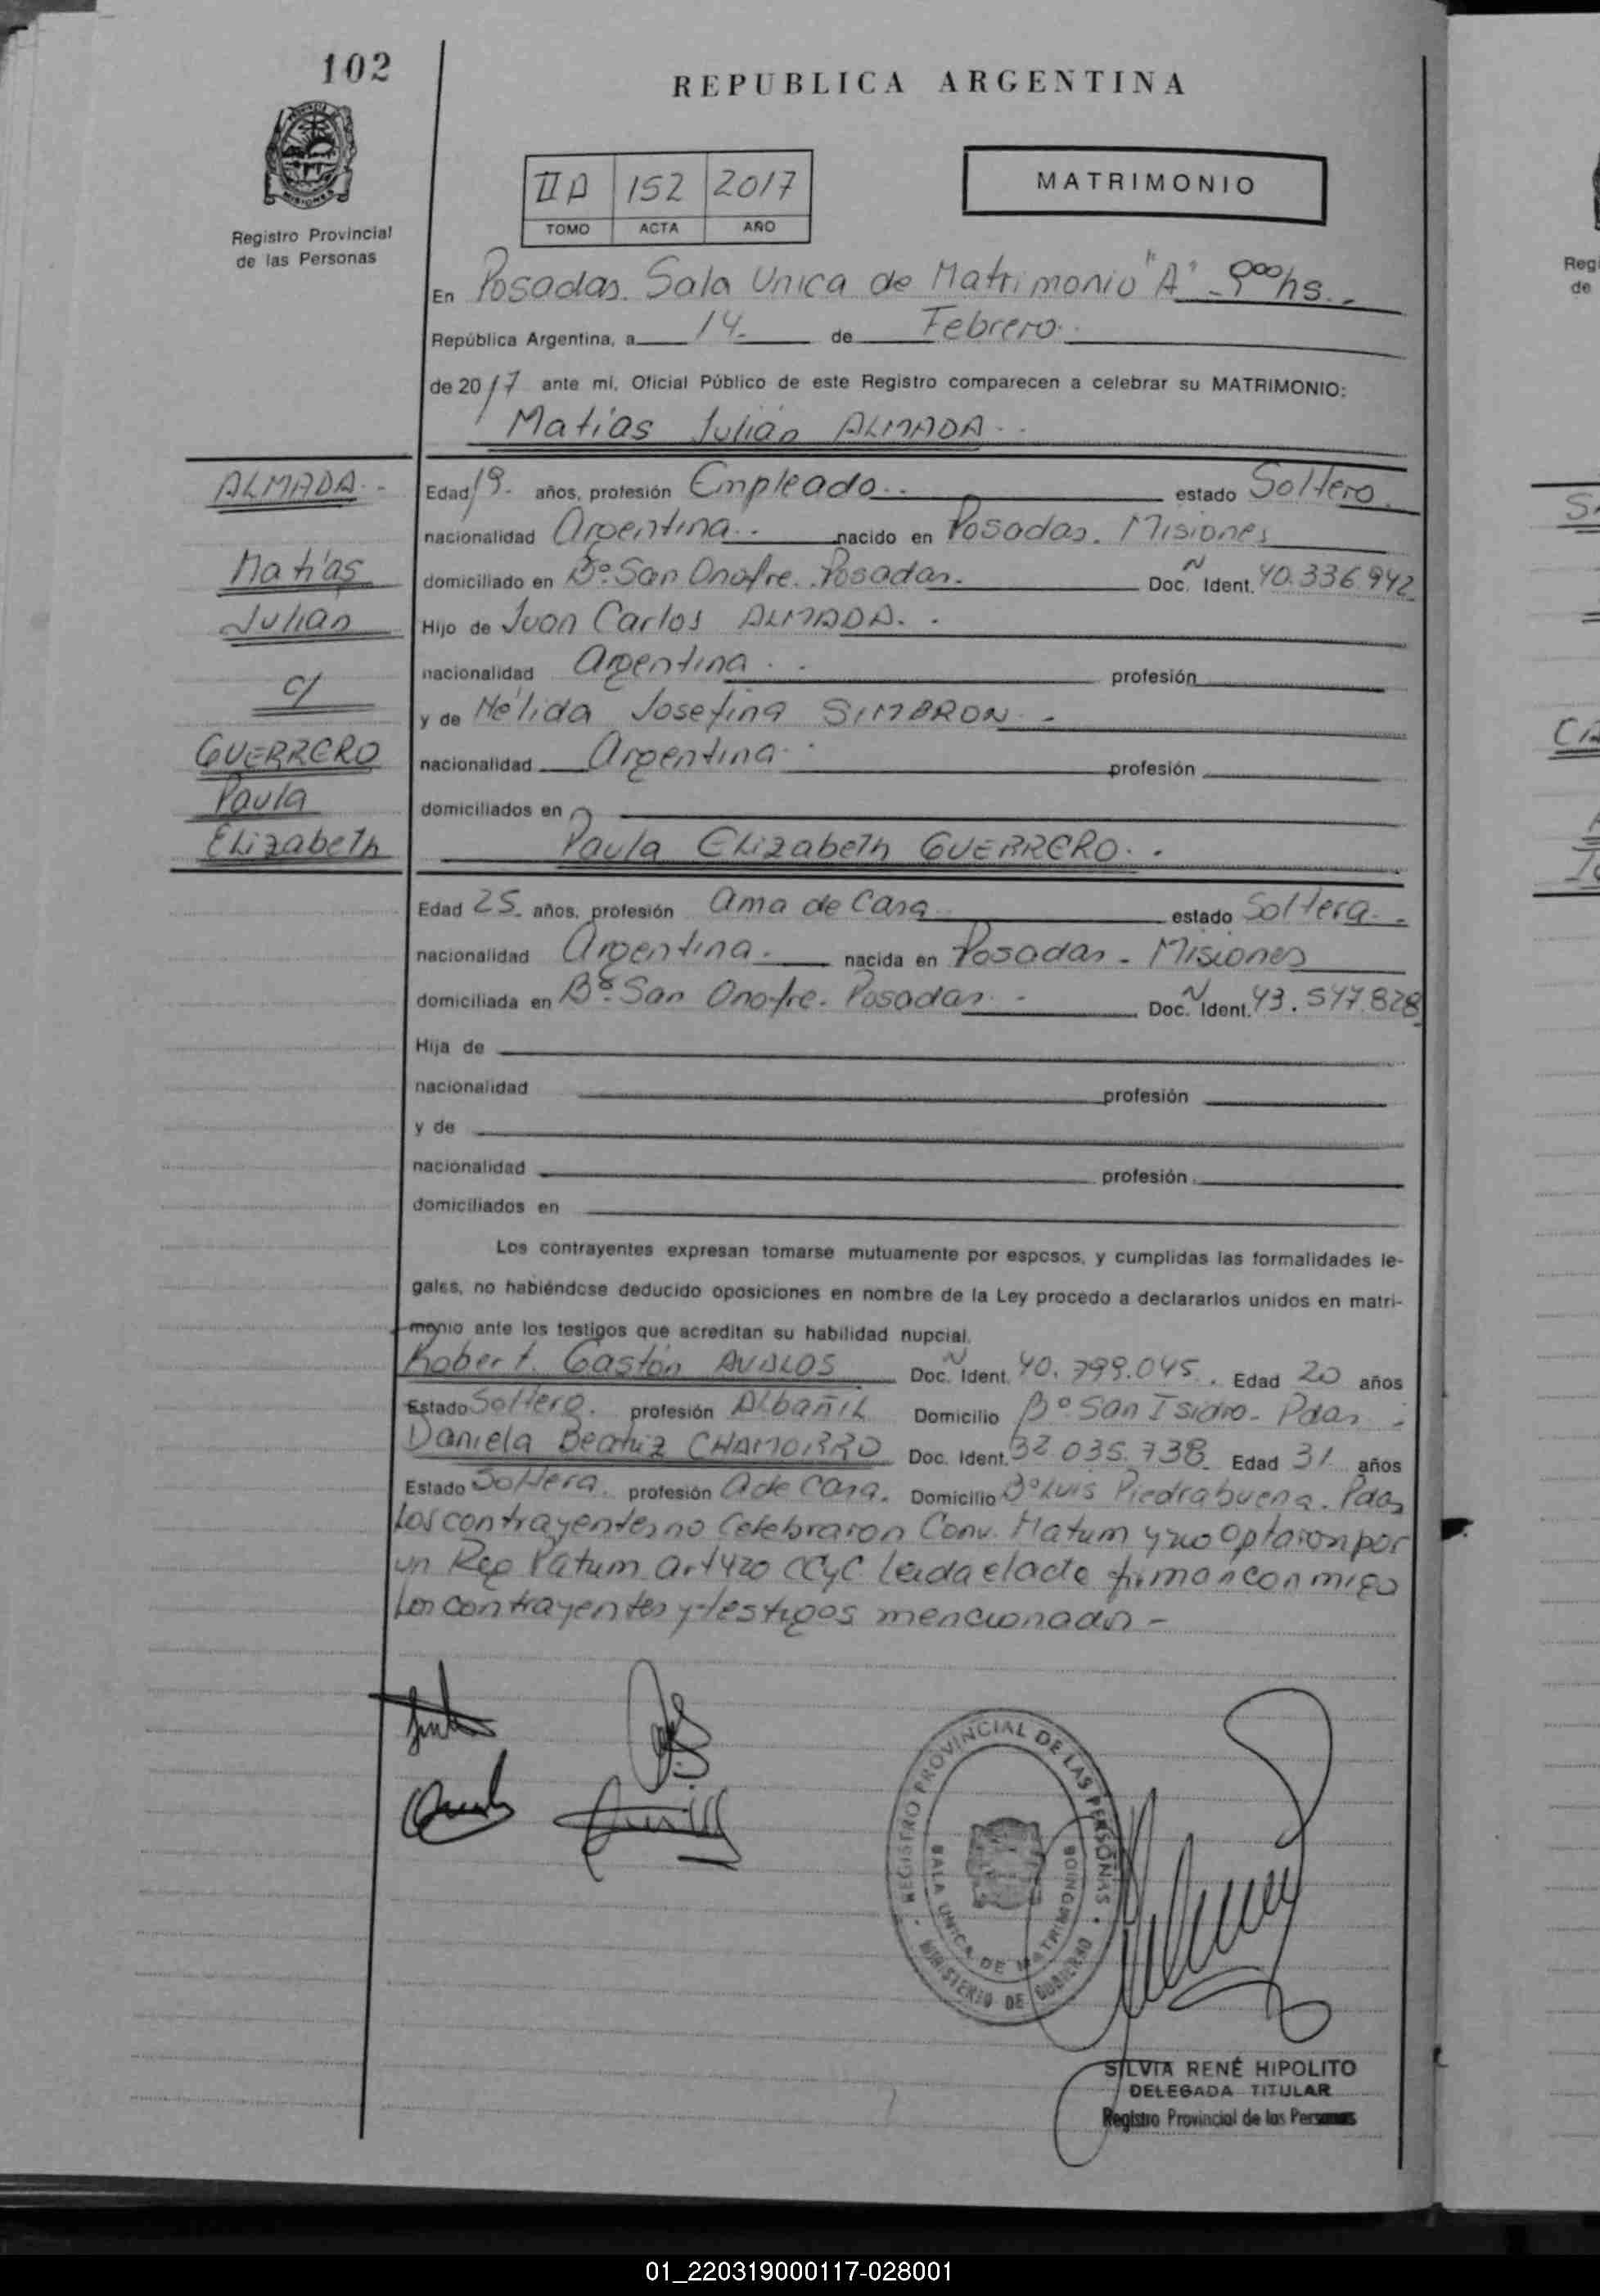 102
REPUBLICA ARGENTINA
Registro Provincial
de las Personas
II D 152 2017
TOMO ACTA AÑO
MATRIMONIO
En Posadas. Sala Unica de Matrimonio "A" - 9 000 hs.-
República Argentina, a 14. de Febrero.
de 2017 ante mí, Oficial Público de este Registro comparecen a celebrar su MATRIMONIO:
Matías Julián ALMADA.
ALMADA.
Matías
Julián
c/
GUERRERO
Paula
Elizabeth
Edad 19. años, profesión Empleado.. estado Soltero.
nacionalidad Argentina.. nacido en Posadas. Misiones
domiciliado en Bº San Onofre. Posadas. Doc. N Ident. 40.336.942
Hijo de Juan Carlos ALMADA..
nacionalidad Argentina.. profesión
y de Nélida Josefina SIMBRON.-
nacionalidad Argentina.. profesión
domiciliados en
Paula Elizabeth GUERRERO..
Edad 25. años, profesión Ama de Casa estado Soltera.-
nacionalidad Argentina. nacida en Posadas - Misiones
domiciliada en Bº San Onofre. Posadas.- Doc. N Ident. 43.547.828
Hija de
nacionalidad profesión
y de
nacionalidad profesión
domiciliados en
Los contrayentes expresan tomarse mutuamente por esposos, y cumplidas las formalidades le-
gales, no habiéndose deducido oposiciones en nombre de la Ley procedo a declararlos unidos en matri-
monio ante los testigos que acreditan su habilidad nupcial.
Robert. Gastón AVALOS Doc. N Ident. 40.799.045. Edad 20 años
Estado Soltero. profesión Albañil Domicilio Bº San Isidro - Pdas.
Daniela Beatriz CHAMORRO Doc. Ident. 32.035.738. Edad 31 años
Estado Soltera. profesión A de Casa. Domicilio Bº Luis Piedrabuena. Pdas
Los contrayentes no Celebraron Conv. Matum y no optaron por
un Reg Patum art 420 CCyC leida el acta firman conmigo
Los contrayentes y testigos mencionados -
REGISTRO PROVINCIAL DE LAS PERSONAS
SALA UNICA DE MATRIMONIOS
MINISTERIO DE GOBIERNO
SILVIA RENÉ HIPOLITO
DELEGADA TITULAR
Registro Provincial de las Personas
Regi
de
01_220319000117-028001